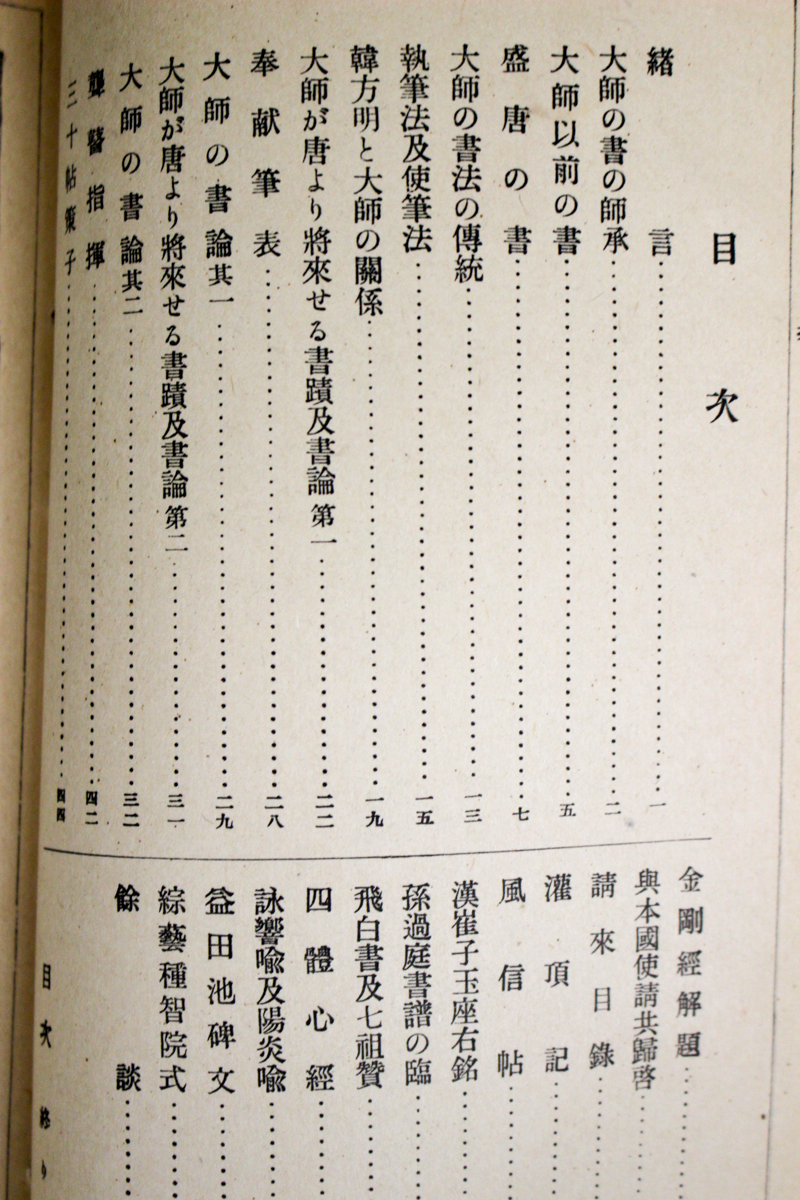 目次
緒言・・・・・・一
大師の書の師承・・・・・・二
大師以前の書・・・・・・五
盛唐の書・・・・・・七
大師の書法の傳統・・・・・・一三
執筆法及使筆法・・・・・・一五
韓方明と大師の關係・・・・・・一九
大師が唐より將來せる書蹟及書論第一・・・・・・二二
奉献筆表・・・・・・二八
大師の書論其一・・・・・・二九
大師が唐より將來せる書蹟及書論第二・・・・・・三一
大師の書論其二・・・・・・三二
聾瞽指揮・・・・・・四二
三十帖策子・・・・・・四四
金剛經解題・・・・・・
與本國使請共歸啓・・・・・・
請來目錄・・・・・・
灌頂記・・・・・・
風信帖・・・・・・
漢崔子玉座右銘・・・・・・
孫過庭書譜の臨・・・・・・
飛白書及七祖贊・・・・・・
四體心經・・・・・・
詠響喩及陽炎喩・・・・・・
益田池碑文・・・・・・
綜藝種智院式・・・・・・
餘談・・・・・・
目次終り